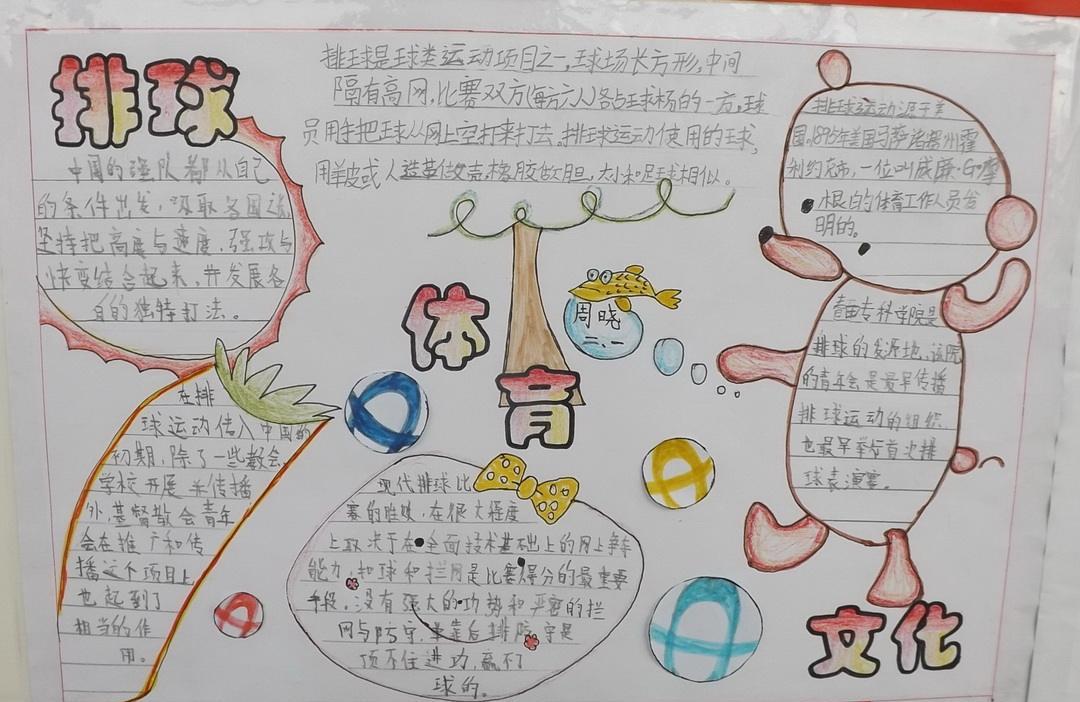 排球
排球是球类运动项目之一,球场长方形,中间
隔有高网,比赛双方(每方六人)各占球场的一方,球
员用手把球从网上空打来打去。排球运动使用的球,
用羊皮或人造革做壳,橡胶做胆,大小和足球相似。
中国的强队都从自己
的条件出发,吸取各国之
坚持把高度与速度、强攻与
快变结合起来,并发展各
自的独特打法。
在排
球运动传入中国的
初期,除了一些教会
学校开展并传播
外,基督教会青年
会在推广和传
播这个项目上
也起到了
相当的作
用。
体
育
周晓
二、一
现代排球比
赛的胜败,在很大程度
上取决于在全面技术基础上的网上争夺
能力,扣球和拦网是比赛得分的最重要
手段,没有强大的攻势和严密的拦
网与防守,单靠后排防守是
顶不住进功,赢不
球的。
排球运动源于美
国,1895年美国马萨诸塞州霍
利约克市,一位叫威廉·G·摩
根的体育工作人员发
明的。
青田专科学院是
排球的发源地,该院
的青年会是最早传播
排球运动的组织,
也最早举行首次排
球表演赛。
文化